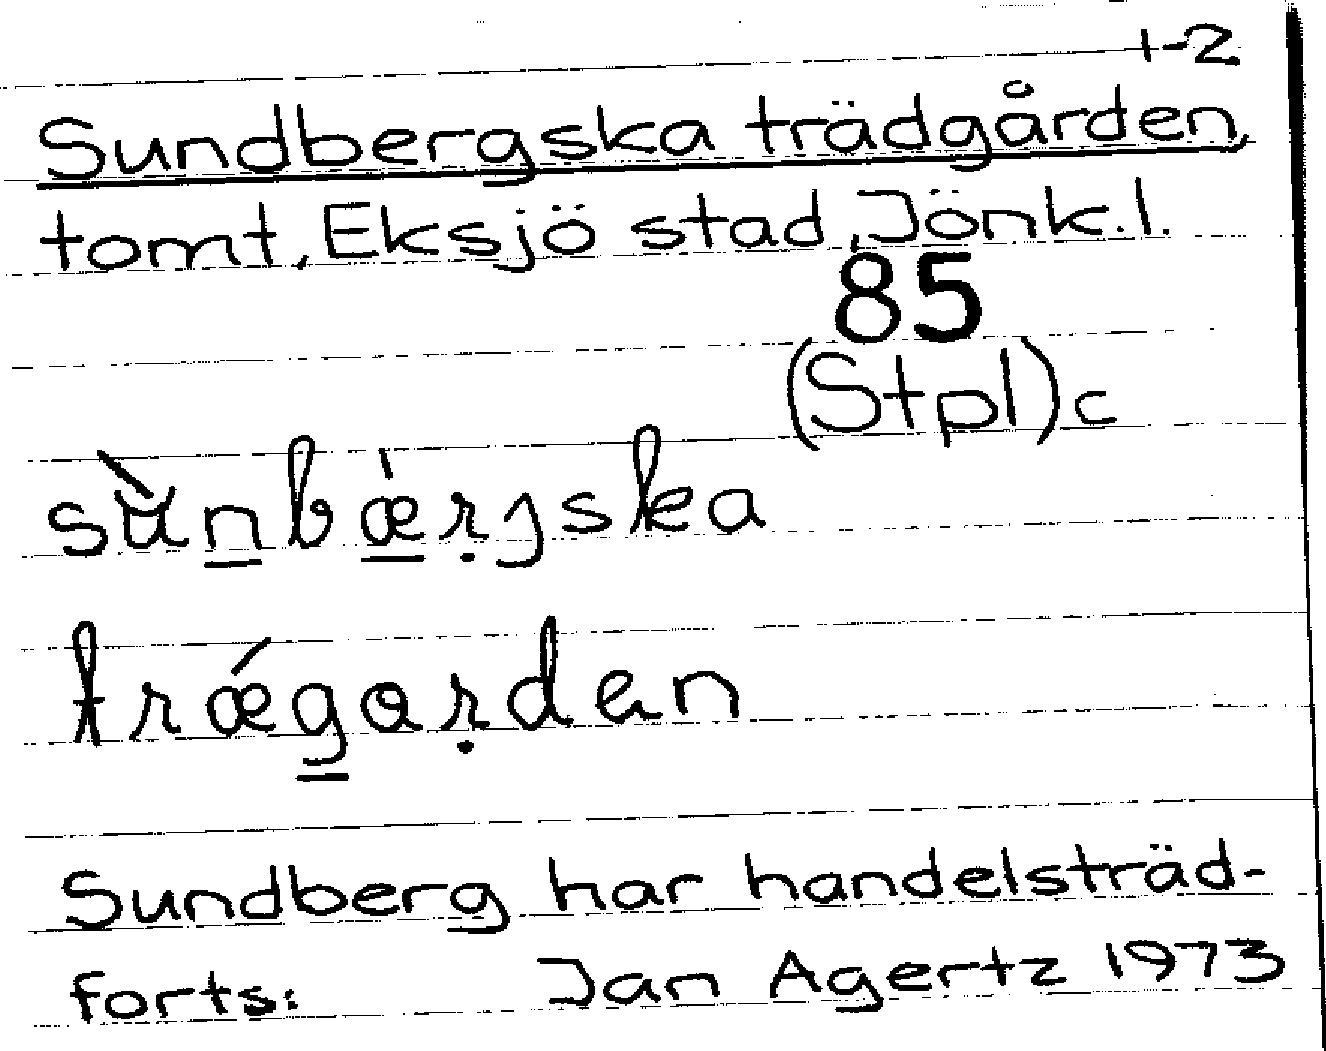 1-2
Sundbergska trädgården,
tomt, Eksjö stad, Jönk.l.
85
(Stpl)c
sùnbǽrjska
trǽgarden
Sundberg har handelsträd-
forts: Jan Agertz 1973